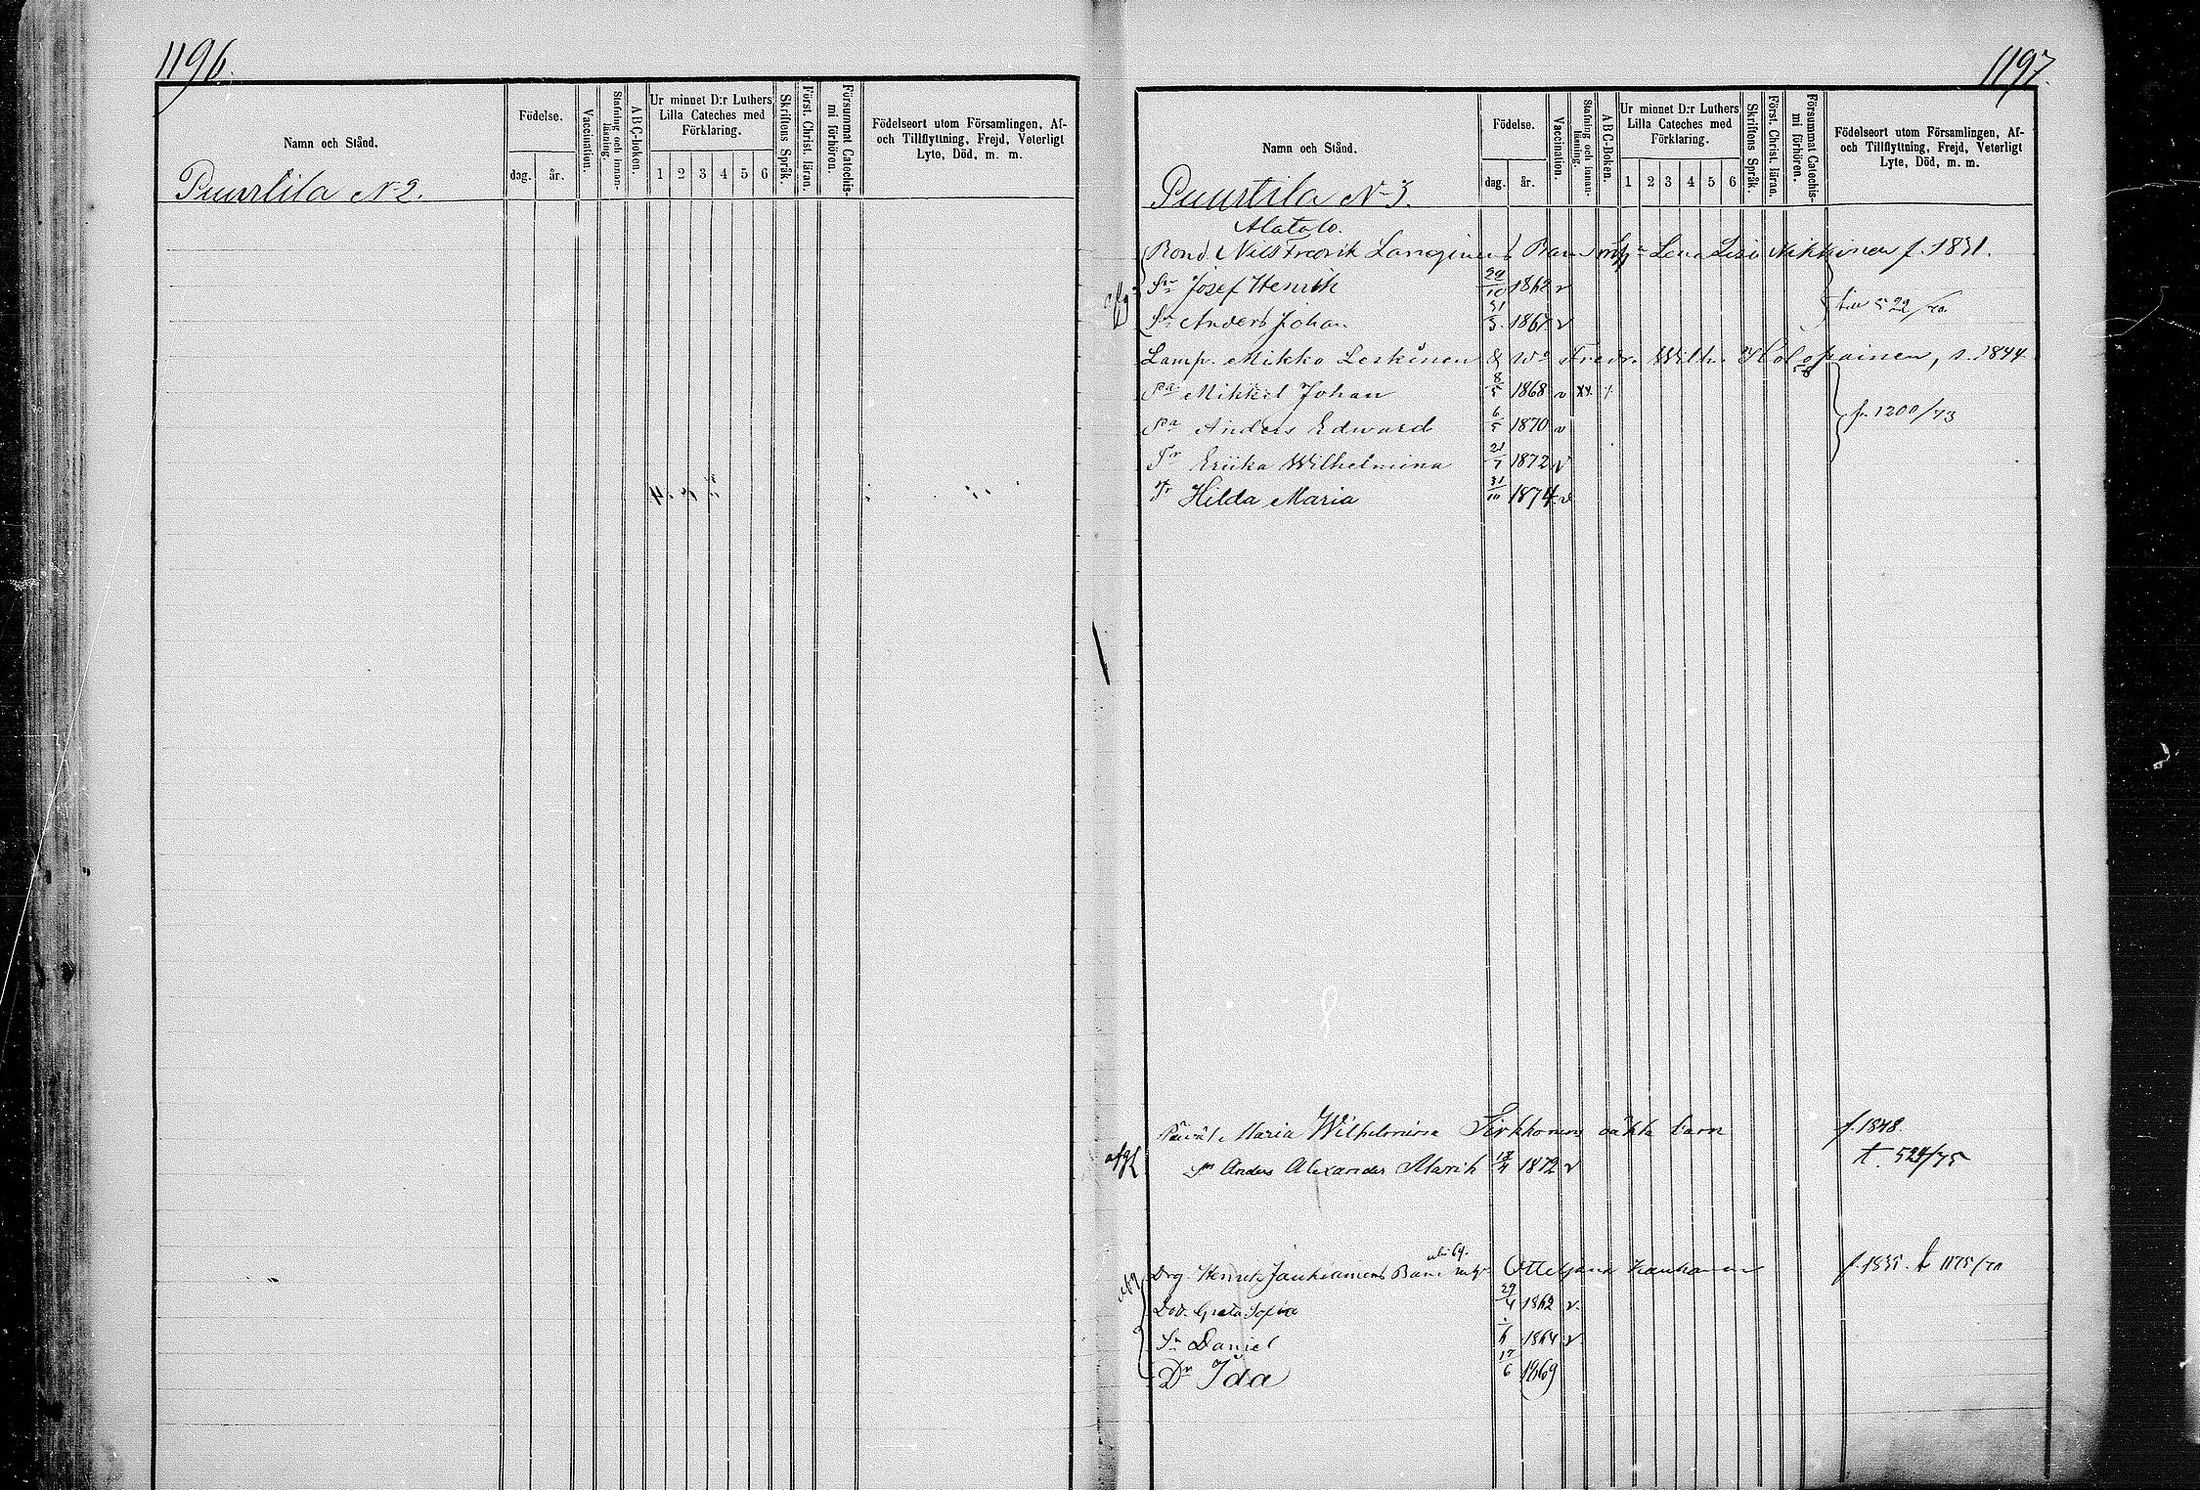 1196.
Namn och Stånd.
Födelse.
dag.
år.
Vaccination.
Stafning och innan-läsning.
ABC-boken.
Ur minnet D:r Luthers
Lilla Cateches med
Förklaring.
1 2 3 4 5 6
Skriftens Språk.
Först. Christ. läran.
Försummat Catechis-mi förhören.
Födelseort utom Församlingen, Af-
och Tillflyttning, Frejd, Veterligt
Lyte, Död, m. m.
Puustila N 2.
1197.
Namn och Stånd.
Födelse.
dag.
år.
Vaccination.
Stafning och innan-läsning.
ABC-Boken.
Ur minnet D:r Luthers
Lilla Cateches med
Förklaring.
1 2 3 4 5 6
Skriftens Språk.
Först. Christ. läran.
Försummat Catechis-mi förhören.
Födelseort utom Församlingen, Af-
och Tillflyttning, Frejd, Veterligt
Lyte, Död, m. m.
Puustila N 3.
Alatalo.
Bond. Nils Fredrik Barn Lena Lisa f. 1831.
Sn Josef Henrik 1862 v
Sn Anders Johan 31/3 v
Lamp. Mikko Leskinen & Wa Fredr. Wilh. Holopainen, s. 1844
Pa Mikkel Johan 8/5 1868 v xx
Pa Anders Edward 6/5 1870 v
fr. 1200/73
Tr Eriika Wilhelmina 21/7 1872 v
Tr Hilda Maria 31/10 1874 v
Maria Wilhelmina oäkta barn f. 1848.
Sn Anders Alexander 1872 v t. 524/75
Drg. Henrik Barn f. 1835. 1175/70
Dott. Greta Sofia 29/4 1862 v.
Sn Daniel 1864 v
Dr Ida 17/6 1869